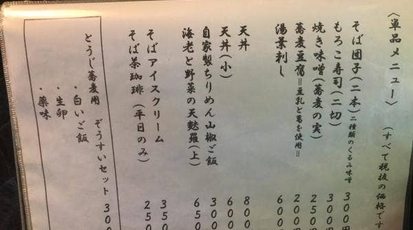 〈単品メニュー〉(すべて税抜の価格です
そば団子(二本)二種類のくるみ味噌 300
もろこ寿司(二切) 350
焼き味噌(蕎麦の実) 250
蕎麦豆腐=豆乳と葛を使用= 200
湯葉刺し 600
天丼 800
天丼(小) 600
自家製ちりめん山椒ご飯 300
海老と野菜の天麩羅(上) 650
そばアイスクリーム 350
そば茶珈琲(平日のみ) 250
とうじ蕎麦用 ぞうすいセット 300
・白いご飯
・生卵
・薬味